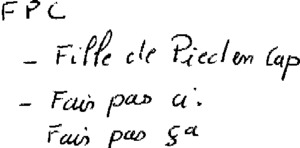 FPC
- Fille de Pied en Cap
- Fais pas ci.
Fais pas ça